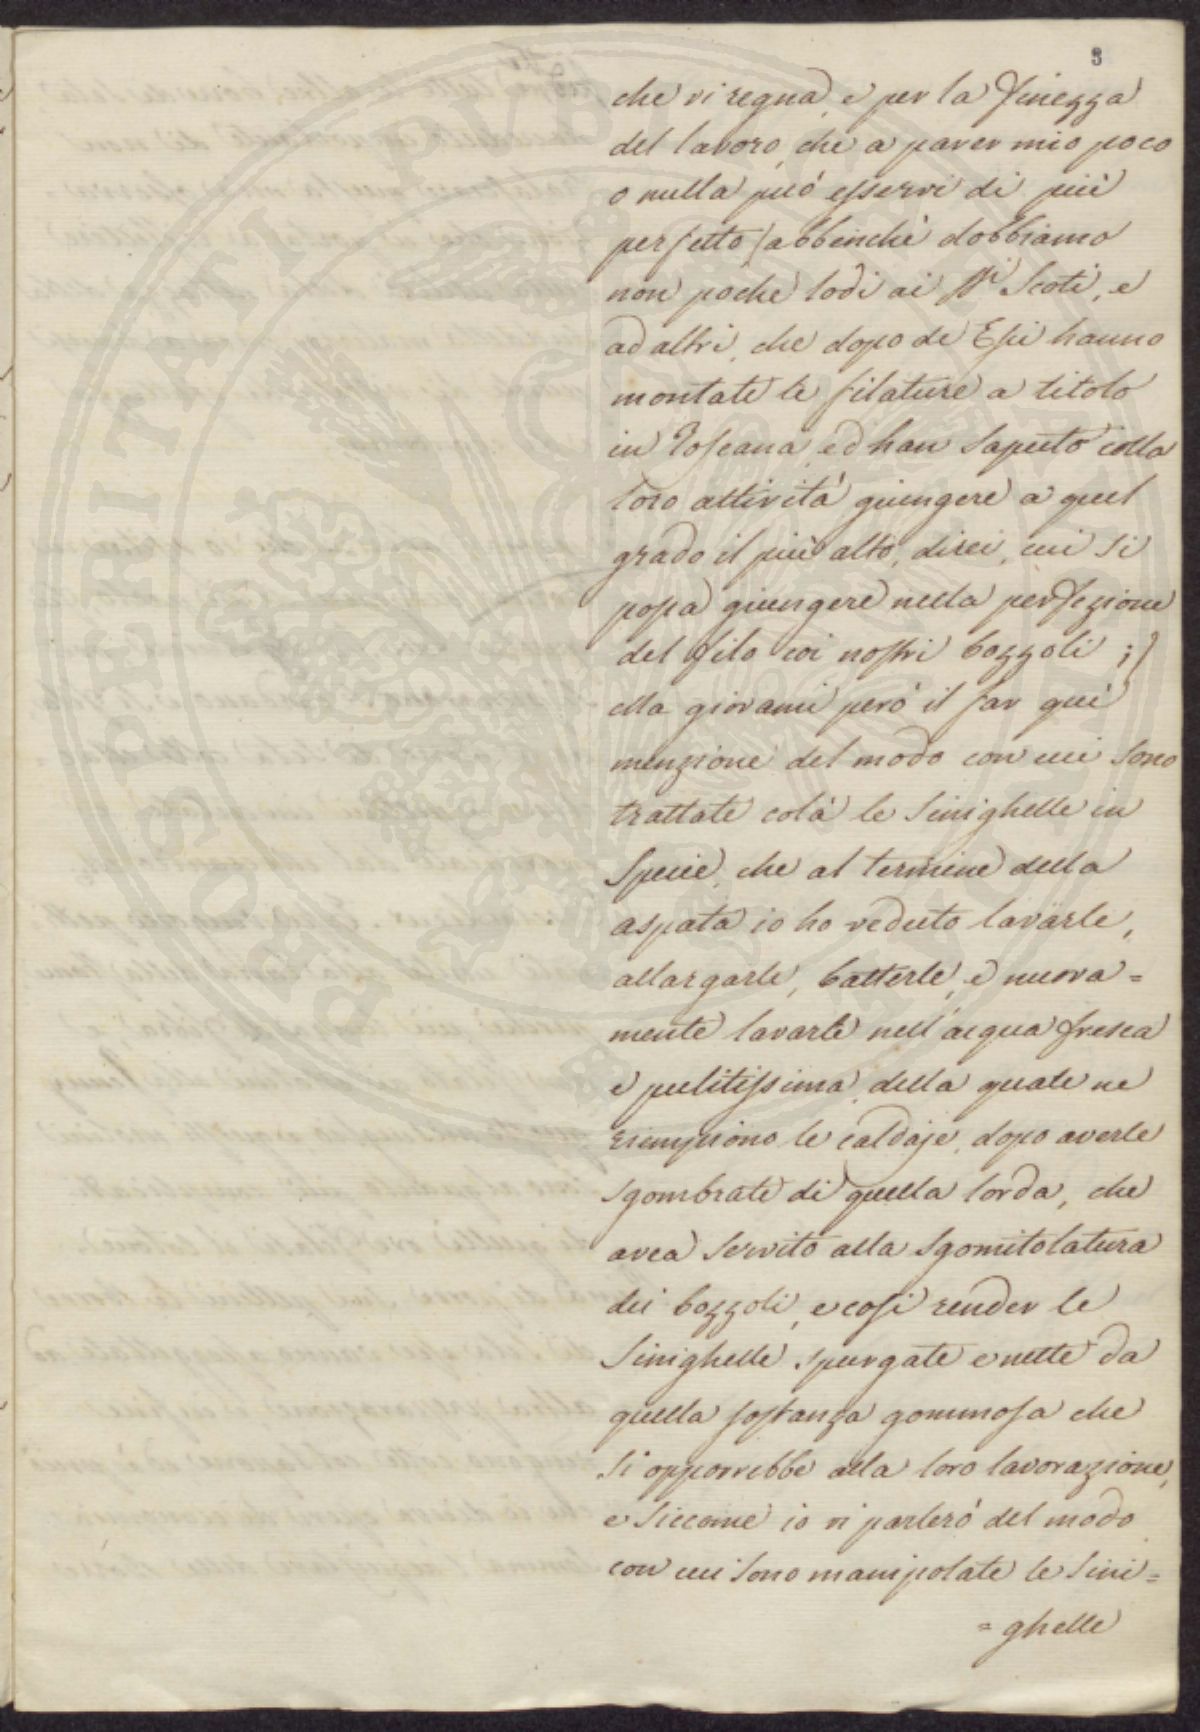 3
che vi regna, e per la finezza
del lavoro, che a parer mio poco
o nulla può esservi di più
perfetto (abbenchè dobbiamo
non poche lodi ai SS.i Scoti, e
ad altri, che dopo di Essi hanno
montate le filature a titolo
in Toscana, ed han saputo colla
loro attività giungere a quel
grado il più alto, direi, cui si
possa giungere nella perfezione
del filo coi nostri bozzoli ;)
Ma giovami però il far quì
menzione del modo con cui sono
trattate colà le Sinighelle in
Specie, che al termine della
aspata io ho veduto lavarle,
allargarle, batterle, e nuova=
mente lavarle nell'acqua fresca
e pulitissima, della quale ne
riempiono le caldaje, dopo averle
sgombrate di quella lorda, che
avea servito alla sgomitolatura
dei bozzoli, e così render le
Sinighelle spurgate e nette da
quella sostanza gommosa che
si opporrebbe alla loro lavorazione,
e siccome io vi parlerò del modo
con cui sono manipolate le Sini=
=ghelle
PROSPERITATI PVBLICAE